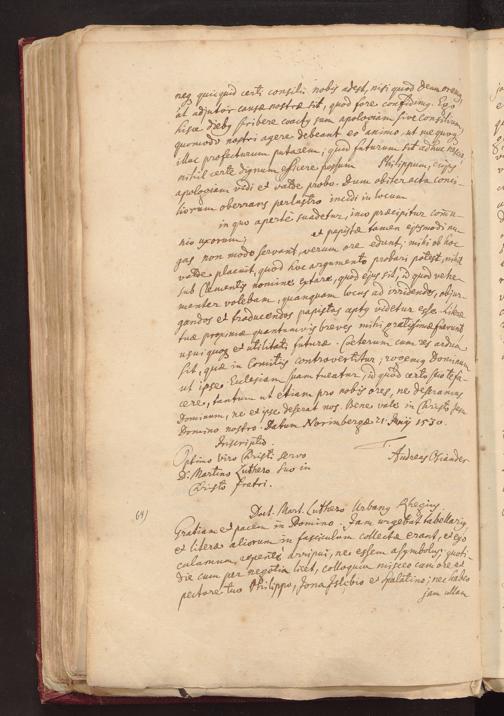 neq quicquid certi consilii nobis adest, nisi quod Deum oremus,
ut adjutor causæ nostræ sit, quod fore confidimus. Ego
hisce diebus scribere coactus sum apologiam sive consilium,
quomodo nostri agere debeant eo animo, ut me quoq
illuc profecturum putarem; quid futurum sit adhuc
nihil certe dignum efficere possum Philippum, cujus
apologiam vidi et valde probo. Dum obiter acta conci-
liorum oberrans perlustro incidi in locum
in quo aperte suadetur, imo præcipitur comu-
nio uxorum; et papistæ tamen ejusmodi nu-
gas non modo servant, verum ore edunt; mihi ob hoc
valde placuit, quod hoc argumento probari potest, nihil
sub Clementis nomine extare, quod ejus sit, id quod vehe-
menter volebam, quanquam locus ad irridendos, objur-
gandos et traducendos papistas aptus videtur esse. Literæ
tuæ proximæ quantumvis breves mihi gratissimæ fuerunt
usui quoq et utilitati futuræ. Cæterum cum res ardua
sit, quæ in Comitiis controvertitur; rogemus Dominum
ut ipse Eclesiam suam tueatur, id quod certo scio te fa-
cere, tantum ut etiam pro nobis ores, ne deseramus
Dominum, ne et ipse deserat nos. Bene vale in Christo Jesu
Domino nostro. Datum Norimbergæ 21. Junij 1530.
Inscriptio. Andreas Osiander
Optimo viro Christi servo
D. Martino Luthero suo in
Christo fratri.
(64) Doct. Mart. Luthero Urbanus Rhegius
Gratiam et pacem in Domino. Jam urgebat tabellarius,
et literæ aliorum in fasciculum collectæ erant, et ego
calamum repente arripui, ne essem asymbolus; quoti-
die cum per negotia licet, colloquia misceo cum ore et
pectore tuo Philippo, Jona Islebio et Spalatino; nec habeo
jam ullam